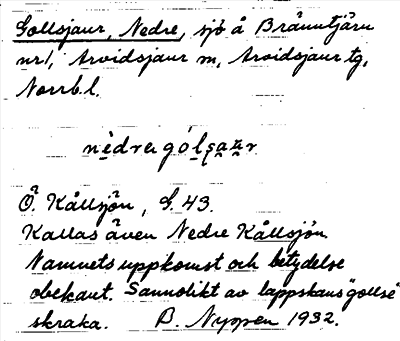 Gollsjaur, Nedre, sjö å Bränntjärn
nr 1, Arvidsjaur sn, Arvidsjaur tg,
Norrb. l.
nèdrə gól̥ʂau̯r
Ö. Kållsjön, G. 43.
Kallas även Nedre Kållsjön
Namnets uppkomst och betydelse
obekant. Sannolikt av lappskans "gollse"
skraka. B. Nyppen 1932.